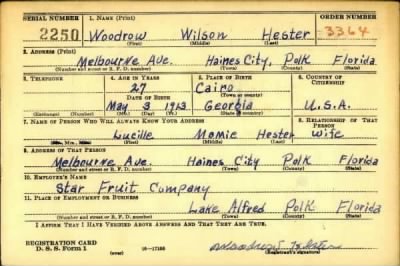 SERIAL NUMBER 1. NAME (Print) ORDER NUMBER
2250 Woodrow Wilson Hester 3364
(First) (Middle) (Last)
2. ADDRESS (Print)
Melbourne Ave. Haines City, Polk Florida
(Number and street or R. F. D. number) (Town) (County) (State)
3. TELEPHONE 4. AGE IN YEARS 5. PLACE OF BIRTH 6. COUNTRY OF CITIZENSHIP
27 Cairo
DATE OF BIRTH (Town or county)
May 3 1913 Georgia U.S.A.
(Exchange) (Number) (Mo.) (Day) (Yr.) (State or country)
7. NAME OF PERSON WHO WILL ALWAYS KNOW YOUR ADDRESS 8. RELATIONSHIP OF THAT PERSON
Lucille Mamie Hester Wife
(Mr., Mrs., Miss) (First) (Middle) (Last)
9. ADDRESS OF THAT PERSON
Melbourne Ave. Haines City Polk Florida
(Number and street or R. F. D. number) (Town) (County) (State)
10. EMPLOYER'S NAME
Star Fruit Company
11. PLACE OF EMPLOYMENT OR BUSINESS
Lake Alfred Polk Florida
(Number and street or R. F. D. number) (Town) (County) (State)
I AFFIRM THAT I HAVE VERIFIED ABOVE ANSWERS AND THAT THEY ARE TRUE.
REGISTRATION CARD
D. S. S. Form 1 (over) 16—17105 (Registrant's signature)